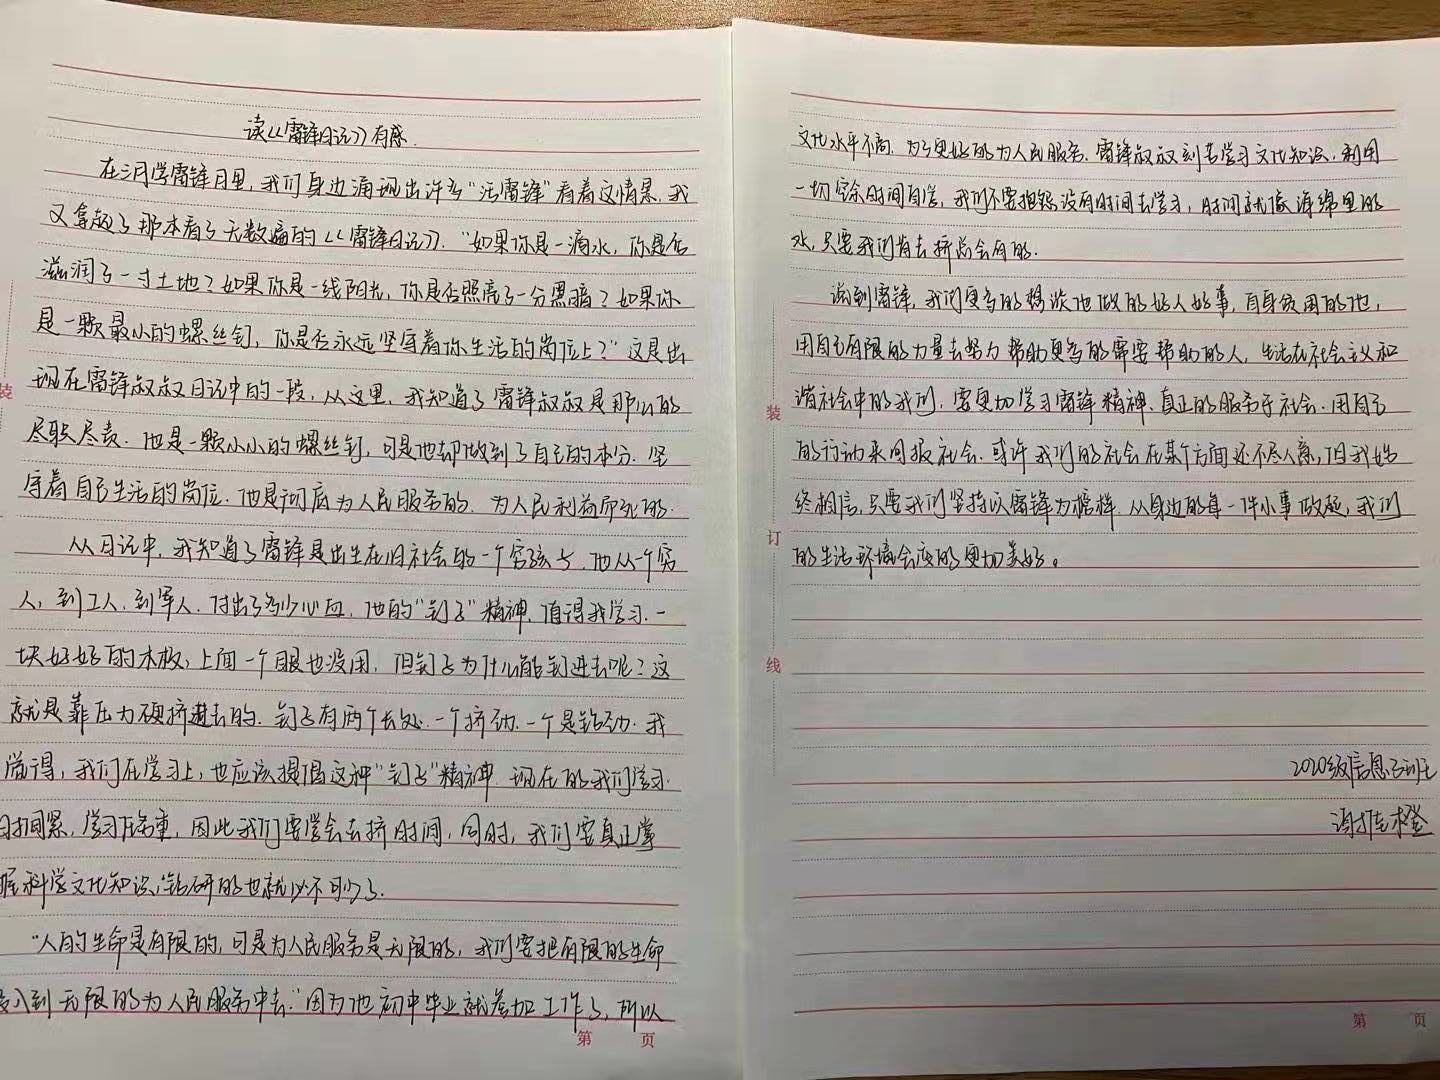 读《雷锋日记》有感.
在三月学雷锋月里,我们身边涌现出许多"活雷锋"看着这情景,我
又拿起了那本看了无数遍的《雷锋日记》."如果你是一滴水,你是否
滋润了一寸土地?如果你是一线阳光,你是否照亮了一分黑暗?如果你
是一颗最小的螺丝钉,你是否永远坚守着你生活的岗位上?"这是出
现在雷锋叔叔日记中的一段,从这里,我知道了雷锋叔叔是那么的
尽职尽责.他是一颗小小的螺丝钉,可是他却做到了自己的本分.坚
守着自己生活的岗位.他是彻底为人民服务的.为人民利益而死的.
从日记中,我知道了雷锋是出生在旧社会的一个穷孩子,他从一个穷
人,到工人,到军人.付出了多少心血,他的"钉子"精神,值得我学习.一
块好好的木板,上面一个眼也没用,但钉子为什么能钉进去呢?这
就是靠压力硬挤进去的.钉子有两个长处.一个挤劲.一个是钻劲.我
觉得,我们在学习上,也应该提倡这种"钉子"精神.现在的我们学习
时间紧,学习任务重,因此我们要学会去挤时间,同时,我们要真正掌
握科学文化知识,钻研的也就必不可少了.
"人的生命是有限的,可是为人民服务是无限的,我们要把有限的生命
投入到无限的为人民服务中去."因为他初中毕业就参加工作了,所以
第 页
文化水平不高.为了更好的为人民服务.雷锋叔叔刻苦学习文化知识,利用
一切空余时间自学,我们不要抱怨没有时间去学习,时间就像海绵里的
水,只要我们肯去挤总会有的.
说到雷锋,我们更多的
他做的好人好事,
用自己有限的力量去努力帮助更多的需要帮助的人,生活在社会主义和
谐社会中的我们,需更加学习雷锋精神,真正的服务于社会.用自己
的行动来回报社会.或许我们的社会在某个方面还不尽人意,但我始
终相信,只要我们坚持以雷锋为榜样.从身边的每一件小事做起,我们
的生活环境会变的更加美好。
2020级信息
第 页
装
订
线
装